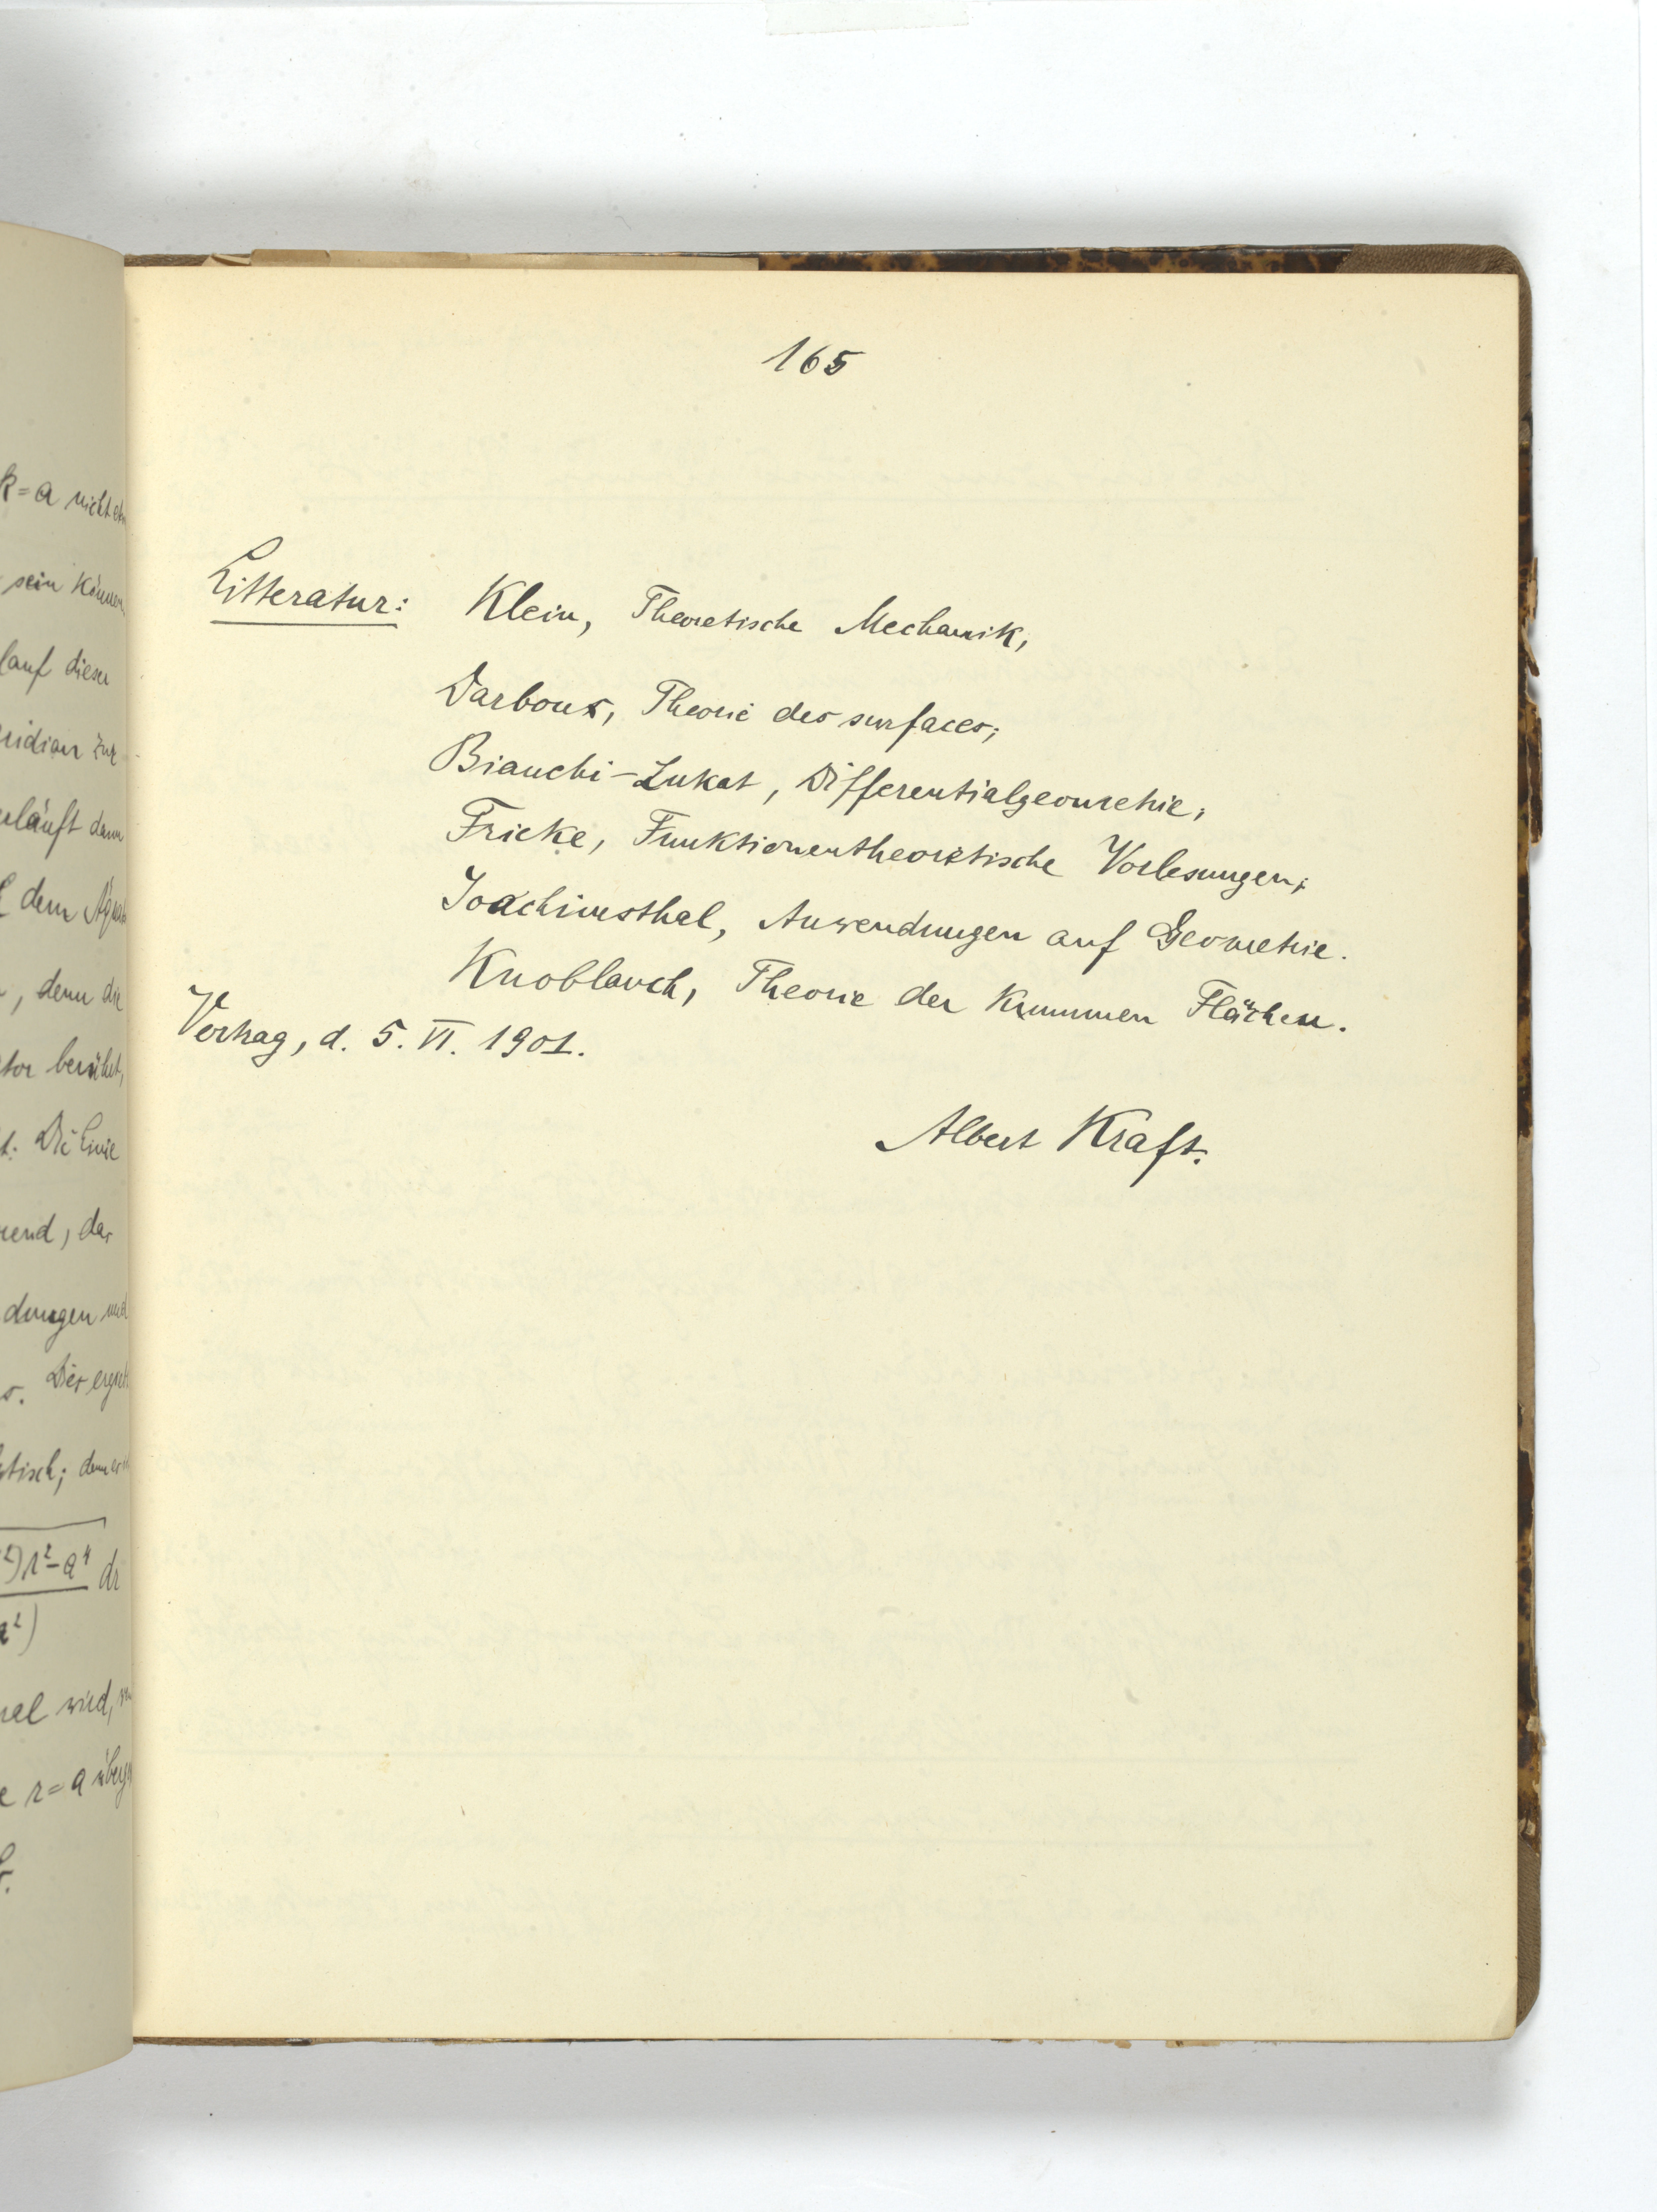 165
Litteratur: Klein, Theoretische Mechanik,
Darboux, Theorie des surfaces;
Bianchi-Lukat, Differentialgeometrie,
Fricke, Funktionentheoretische Vorlesungen;
Joachimsthal, Anwendungen auf Geometrie.
Knoblauch, Theorie der Krummen Flächen.
Vortrag, d. 5. VI. 1901.
Albert Kraft.
k = a nicht
sein können
lauf dieser
ridian zur
erläuft dann
dem
, denn die
tor berührt,
t. Die Linie
rend, das
dungen und
s. Dies
tisch;
²)r²-a⁴ dr
a²)
wird,
r = a